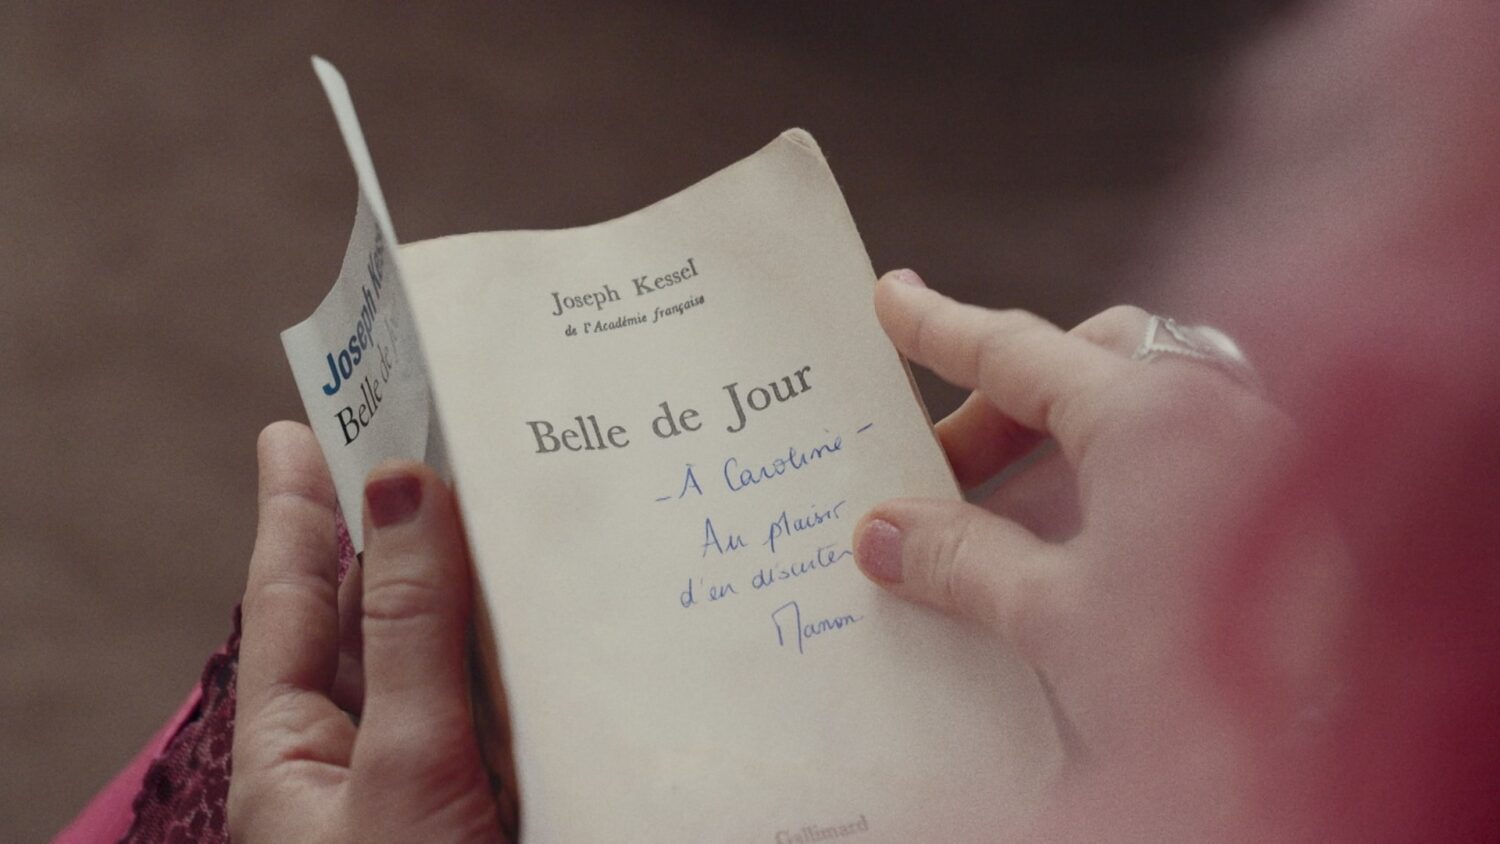 Joseph Kes
Belle de
Joseph Kessel
de l'Académie française
Belle de Jour
– À Caroline –
Au plaisir
d'en discuter
Manon
Gallimard